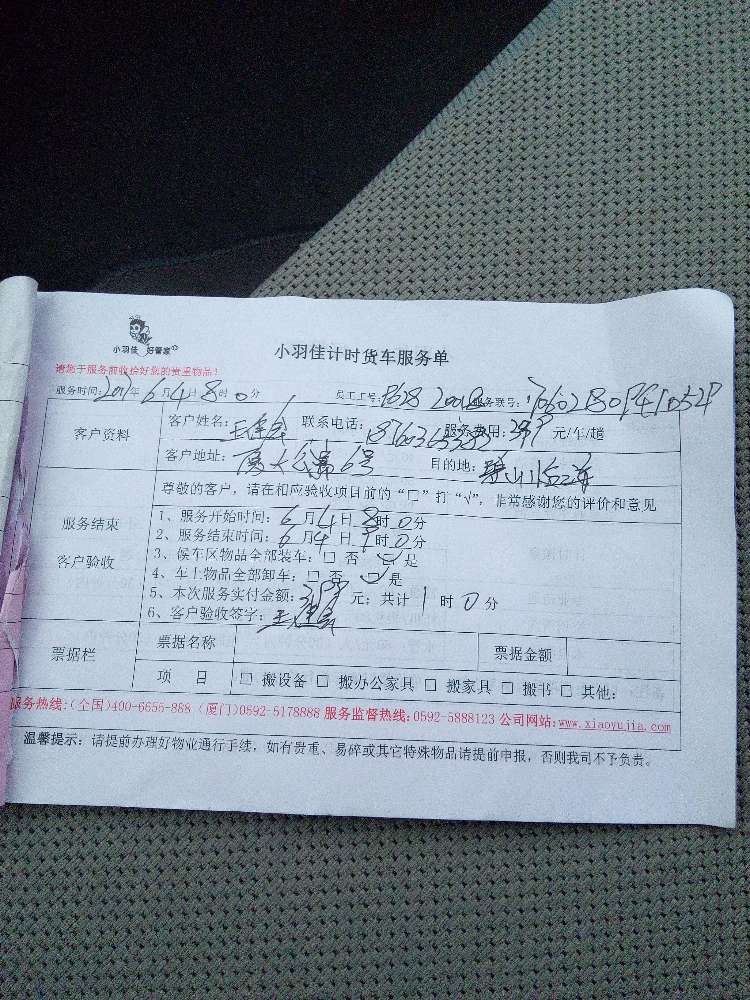 小羽佳 好管家
小羽佳计时货车服务单
请您于服务前收拾好您的贵重物品！
服务时间：2017年6月4日8时0分 员工工号： 服务联号：
客户资料
客户姓名： 联系电话： 服务费用： 元/车/趟
客户地址： 目的地：
尊敬的客户，请在相应验收项目前的“口”打“√”，非常感谢您的评价和意见
服务结束
客户验收
1、服务开始时间：6月4日8时0分
2、服务结束时间：6月4日 时0分
3、候车区物品全部装车：□ 否 □ 是
4、车上物品全部卸车：□ 否 □ 是
5、本次服务实付金额： 元；共计 1 时 0 分
6、客户验收签字：
票据栏
票据名称 票据金额
项 目 □ 搬设备 □ 搬办公家具 □ 搬家具 □ 搬书 □ 其他：
服务热线：（全国）400-6655-888（厦门）0592-5178888 服务监督热线：0592-5888123 公司网站：www.xiaoyujia.com
温馨提示：请提前办理好物业通行手续，如有贵重、易碎或其它特殊物品请提前申报，否则我司不予负责。